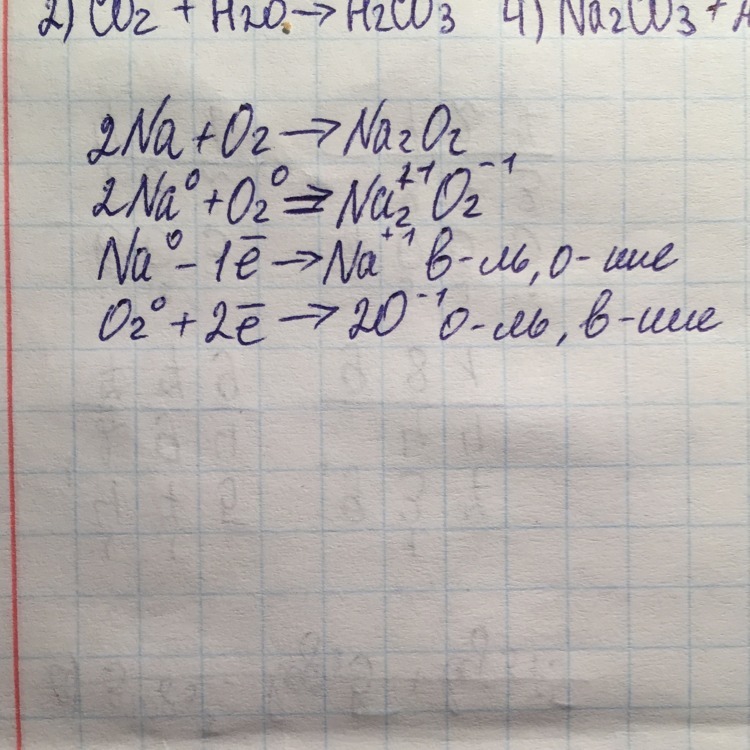 2) CO₂ + H₂O → H₂CO₃ 4) Na₂CO₃ +
2Na + O₂ → Na₂O₂
2Na⁰ + O₂⁰ ⇒ Na₂⁺¹O₂⁻¹
Na⁰ - 1ē → Na⁺¹ в-ль, о-ние
O₂⁰ + 2ē → 2O⁻¹ о-ль, в-ние